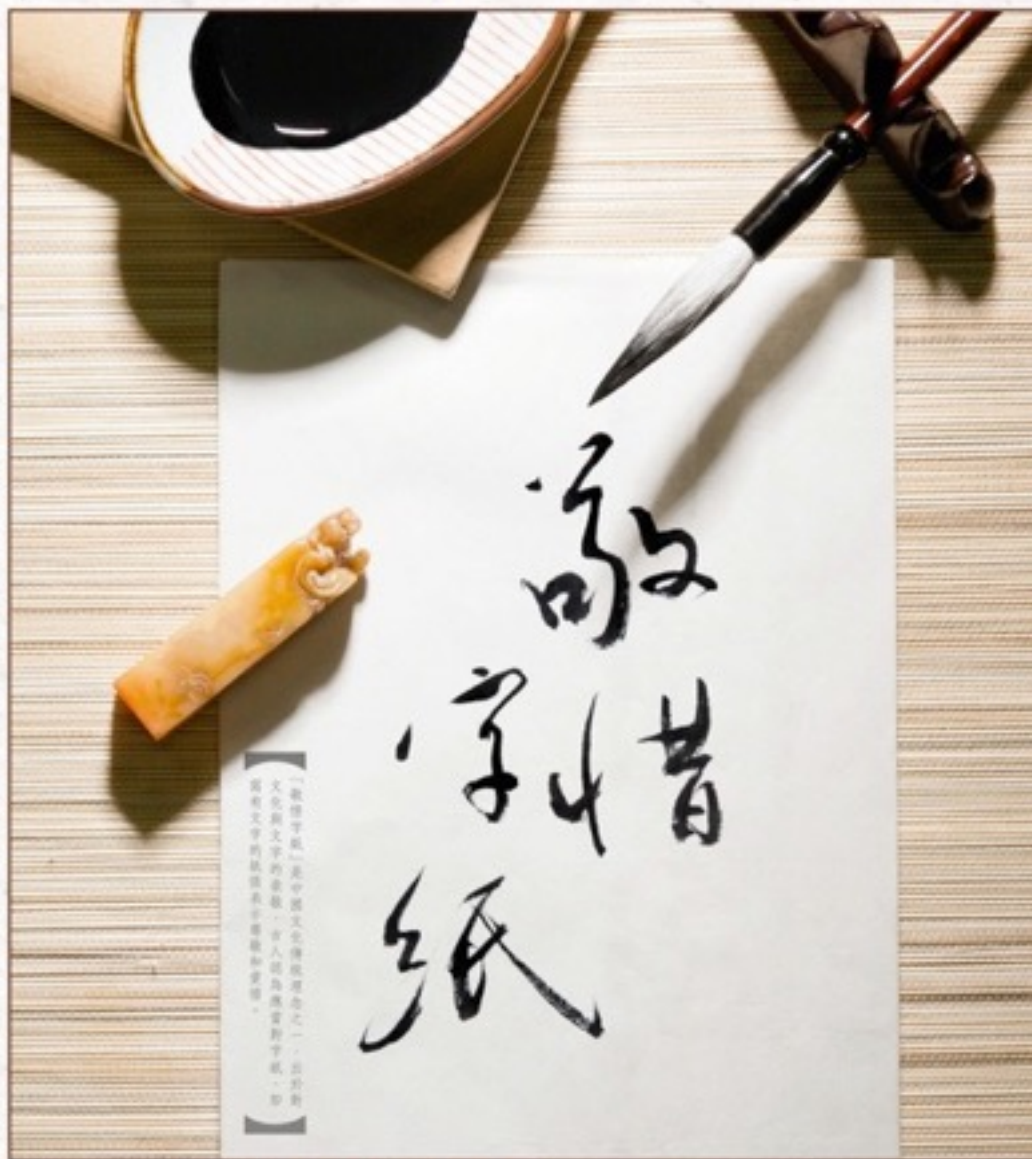 敬惜
字紙
「敬惜字紙」是中國文化傳統理念之一,出於對
文化與文字的崇敬,古人認為應當對字紙,即
寫有文字的紙張表示尊敬和愛惜。